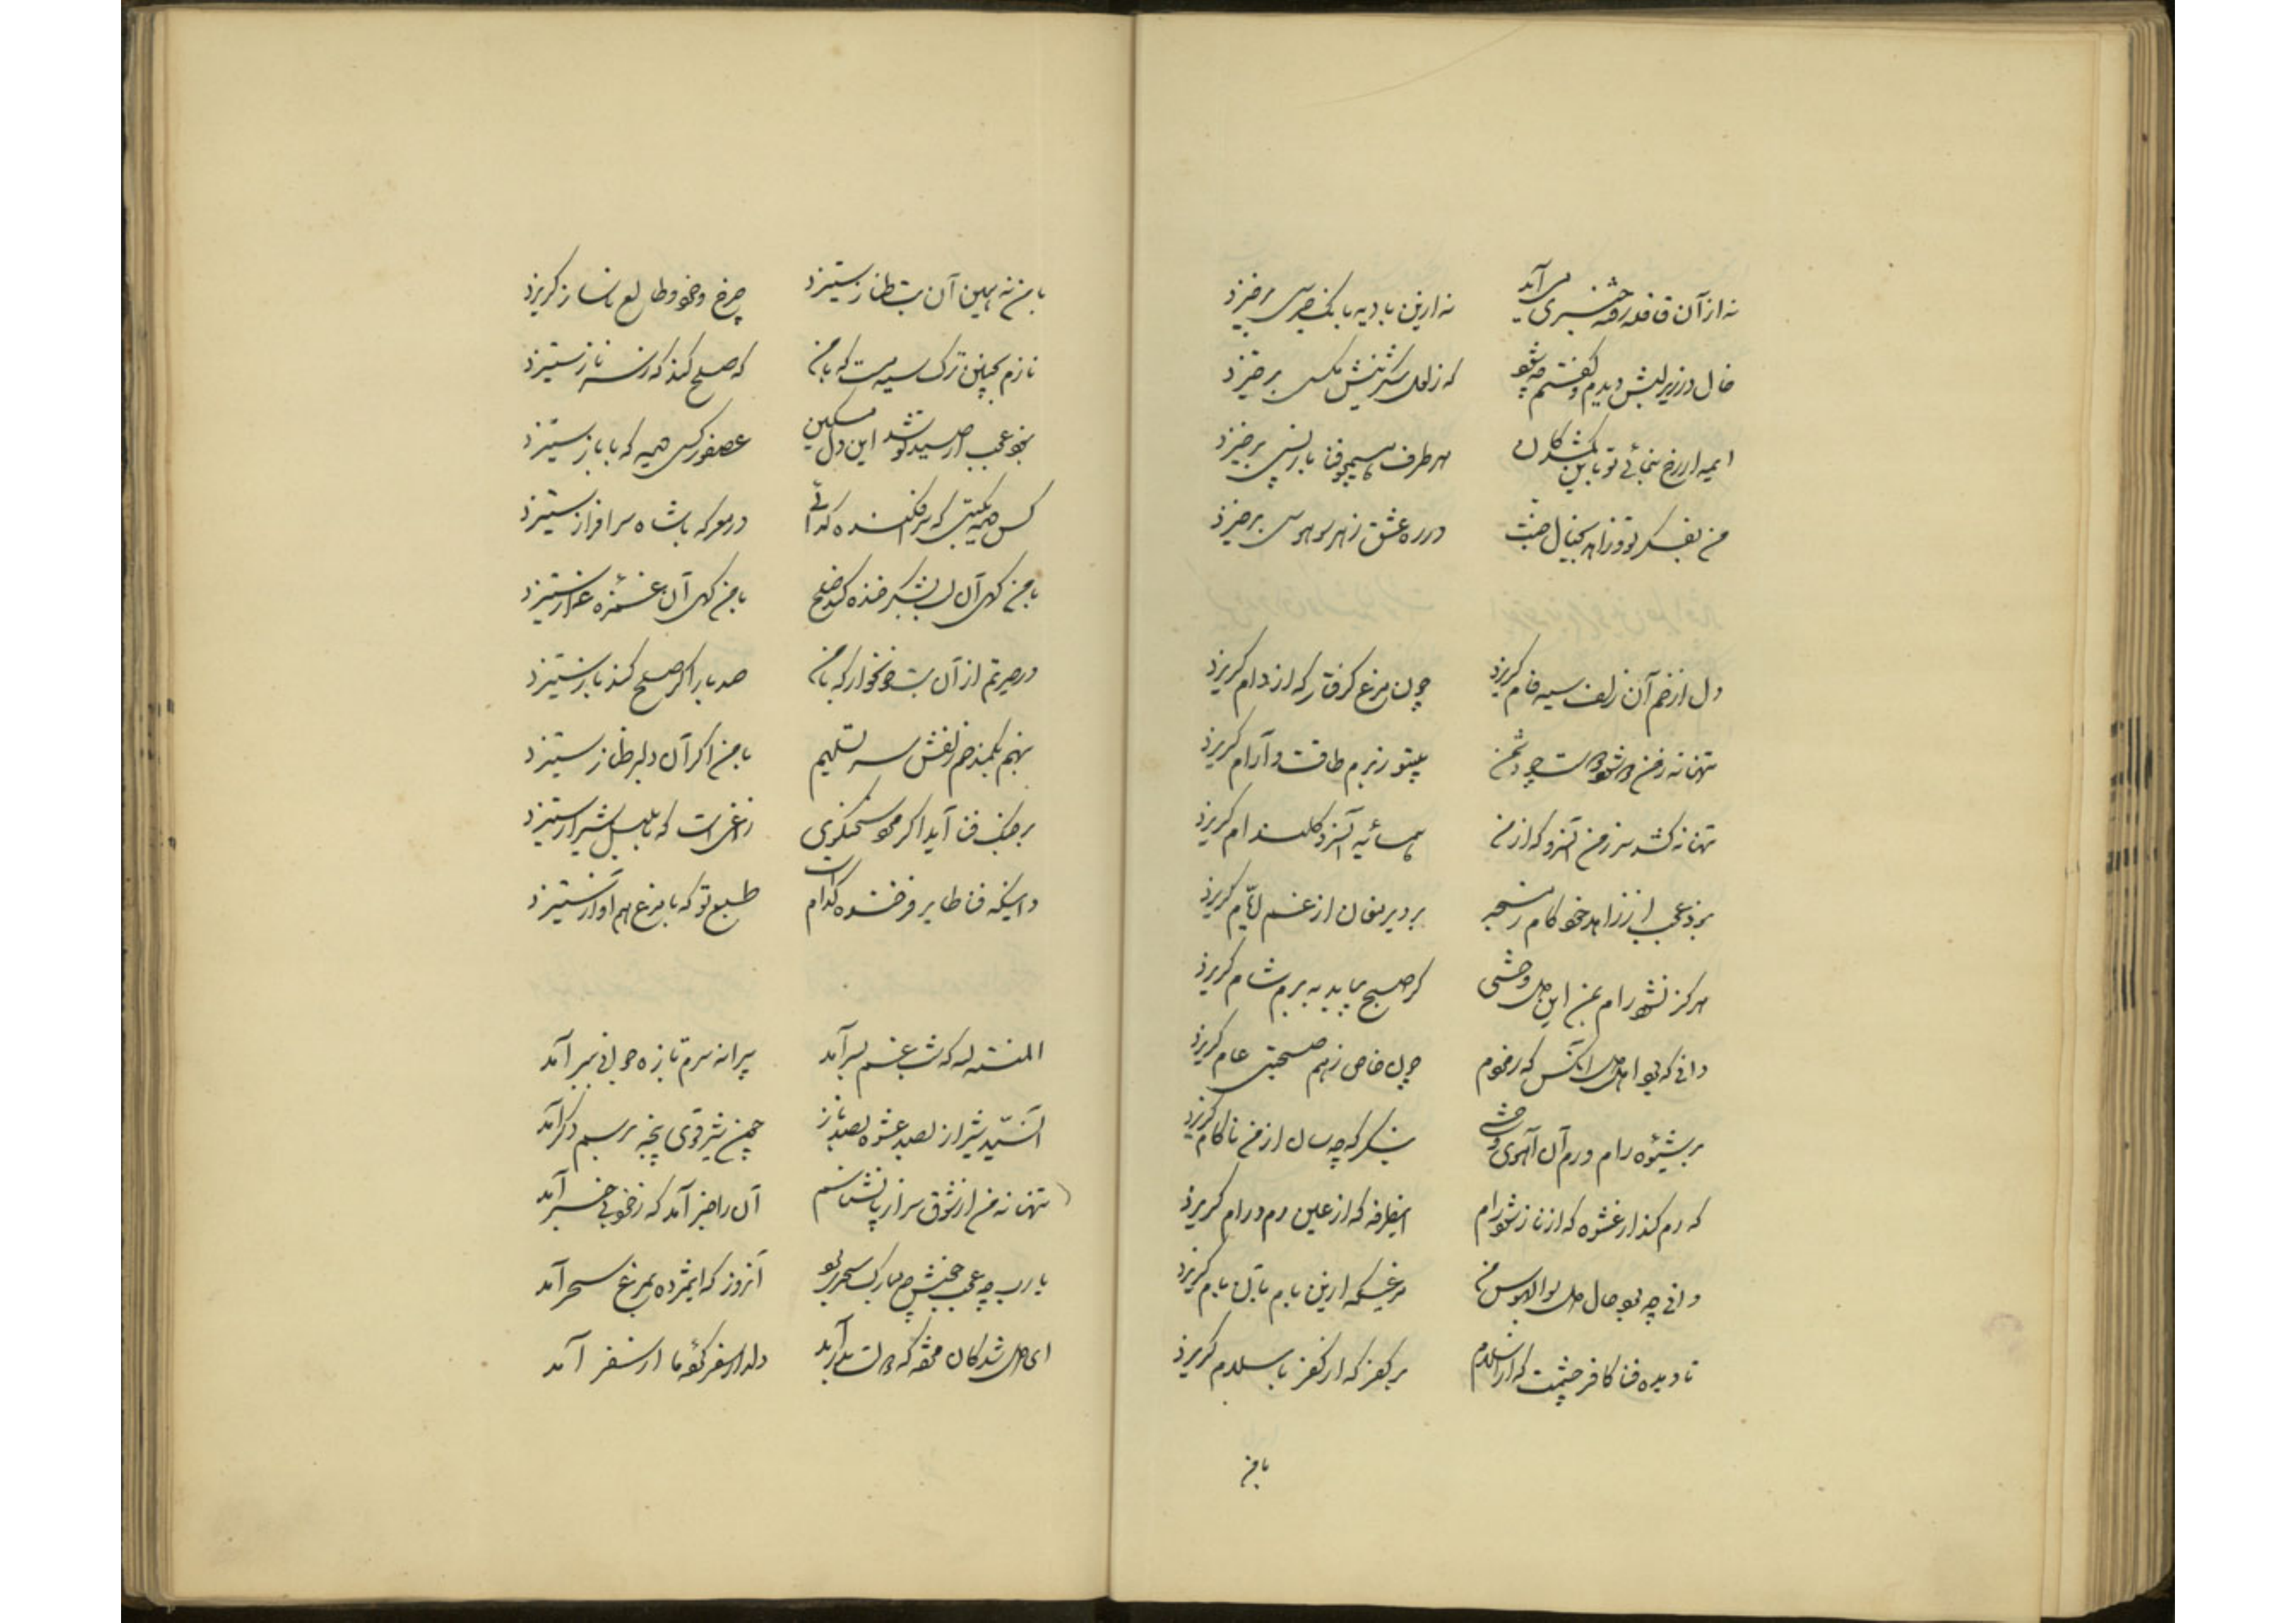 نه از آن قافله رفته خبری می آید نه ازین بادیه بانک جرسی برخیزد
خال در زیر لبش دیدم و گفتم چه شود که ز لعل شکرینش مکسی برخیزد
رخ بنمائی تو باین هر طرف همچو فنا بازپسی برخیزد
من بفکر تو و زاهد بخیال جنت در ره عشق ز هر سو هوسی برخیزد
دل از خم آن زلف سیه فام کریزد چون مرغ کرفتار که از دام کریزد
تنها نه ز من بیتو ز برم طاقت و آرام کریزد
تنها نه کشد سر ز من آنسرو که از من همسائیه آنسرو کلندام کریزد
نبود عجب ار زاهد خودکام ز بر دیر مغان از غم ایام کریزد
هرکز نشود رام بمن این دل وحشی کر صبح بیاید به برم شام کریزد
دانی که بود اهل دل آنکس که ز مردم چون خاص ز هم صحبتی عام کریزد
بر شیوه رام و رم آن آهوی وحشی بنکر که چه سان از من ناکام کریزد
که رم کند از عشوه که از ناز شود رام اینطرفه که از عین رم و رام کریزد
دانی چه بود حال دل بوالهوس من مرغیکه ازین بام بآن بام کریزد
تا دیده فنا کافر چشمت که ز اسلام بر کفر که از کفر باسلام کریزد
با من
با من نه همین آن بت طناز ستیزد چرخ و خود و طالع ناساز کریزد
نازم بچنین ترک سیه مست که با من که صلح کند که ز سر ناز ستیزد
نبود عجب ار صید تو شد این دل مسکین عصفور کسی دیده که با باز ستیزد
کس دیده بکیتی که سرافکنده کدائی در معرکه با شاه سرافراز ستیزد
با من کهی آن لب بشکر خنده کند صلح با من کهی آن غمزه غماز ستیزد
در حیرتم از آن بت خونخوار که با من صد بار اکر صلح کند باز ستیزد
بنهم بکمند خم زلفش سر تسلیم با من اکر آن دلبر طناز ستیزد
بر جنک فنا آید اکر مرد سخنکوی زاغی است که با بلبل شیراز ستیزد
دانیکه فنا طایر فرخنده کدام است طبع تو که با مرغ هم آواز ستیزد
المنته لله که شب غم بسر آمد پیرانه سرم تازه جوانی ببر آمد
آنسید شیراز بصد عشوه بصد ناز چون شیر قوی پنجه برسم دکر آمد
تنها نه من از شوق سر از پا نشناسم آن را خبر آمد که ز خود بی خبر آمد
یارب چه عجب جنبش مبارک سحری بود آنروز که اینمژده بمرغ سحر آمد
ای دل شدکان مژده که دلدار سفر کرده ما از سفر آمد